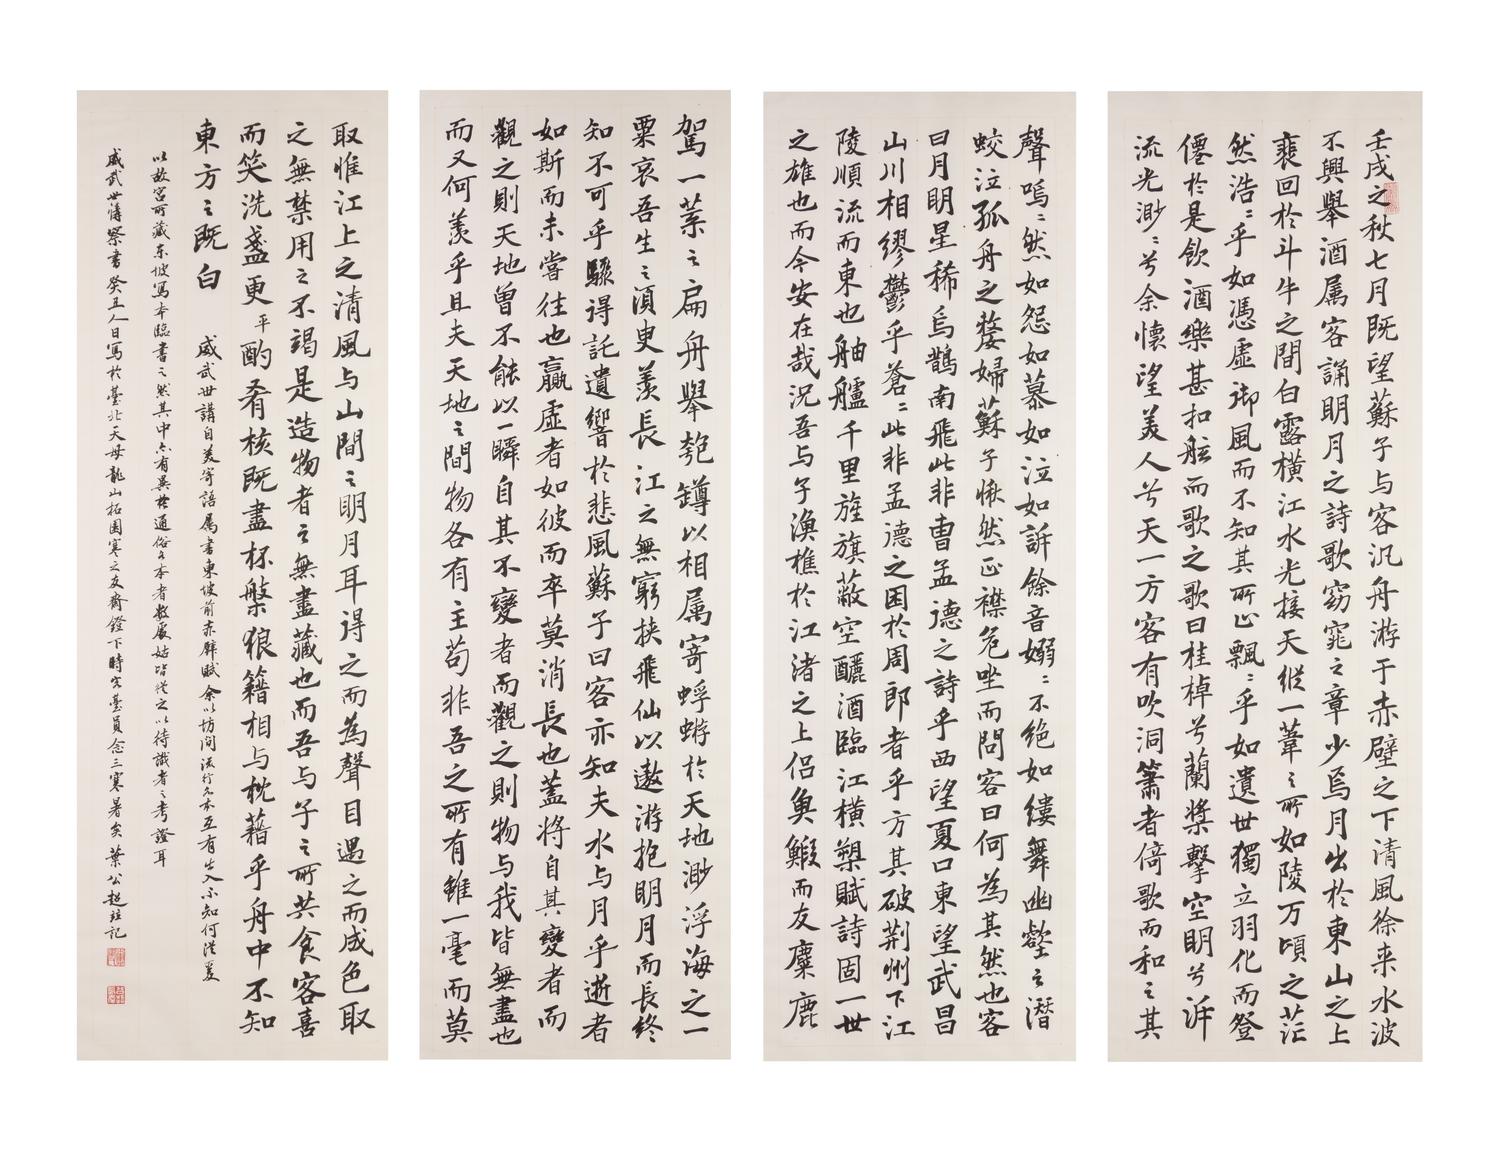 壬戌之秋七月既望蘇子与客汎舟游于赤壁之下清風徐来水波
不興舉酒属客誦明月之詩歌窈窕之章少焉月出於東山之上
裵回於斗牛之間白露横江水光接天縱一葦之所如陵万頃之茫
然浩〻乎如馮虚御風而不知其所止飄〻乎如遺世獨立羽化而登
僊於是飲酒樂甚扣舷而歌之歌曰桂棹兮蘭槳擊空明兮泝
流光渺〻兮余懷望美人兮天一方客有吹洞簫者倚歌而和之其
聲嗚〻然如怨如慕如泣如訴餘音嫋〻不绝如縷舞幽壑之潛
蛟泣孤舟之嫠婦蘇子愀然正襟危坐而問客曰何為其然也客
曰月明星稀烏鵲南飛此非曹孟德之詩乎西望夏口東望武昌
山川相繆鬱乎蒼〻此非孟德之困於周郎者乎方其破荆州下江
陵順流而東也舳艫千里旌旗蔽空釃酒臨江横槊賦詩固一世
之雄也而今安在哉況吾与子漁樵於江渚之上侣魚鰕而友麋鹿
駕一葉之扁舟舉匏罇以相属寄蜉蝣於天地渺浮海之一
粟哀吾生之須臾羨長江之無窮挟飛仙以遨游抱明月而長终
知不可乎驟得託遺響於悲風蘇子曰客亦知夫水与月乎逝者
如斯而未嘗往也贏虚者如彼而卒莫消長也蓋將自其變者而
觀之則天地曾不能以一瞬自其不變者而觀之則物与我皆無盡也
而又何羨乎且夫天地之間物各有主苟非吾之所有雖一毫而莫
取惟江上之清風与山間之明月耳得之而為聲目遇之而成色取
之無禁用之不竭是造物者之無盡藏也而吾与子之所共食客喜
而笑洗盞更平酌肴核既盡杯槃狼籍相与枕藉乎舟中不知
東方之既白
威武世講自美寄語属書東坡前赤壁賦余以坊间流行之本互有出入不知何從爰
以故宮所藏东坡寫本臨書之然其中亦有異於通俗之本者数處姑皆從之以待識者之考證耳
威武世講詧書癸丑人日寫於臺北天母龍山柘園寒之友齋鐙下時客臺員念三寒暑矣葉公超并記